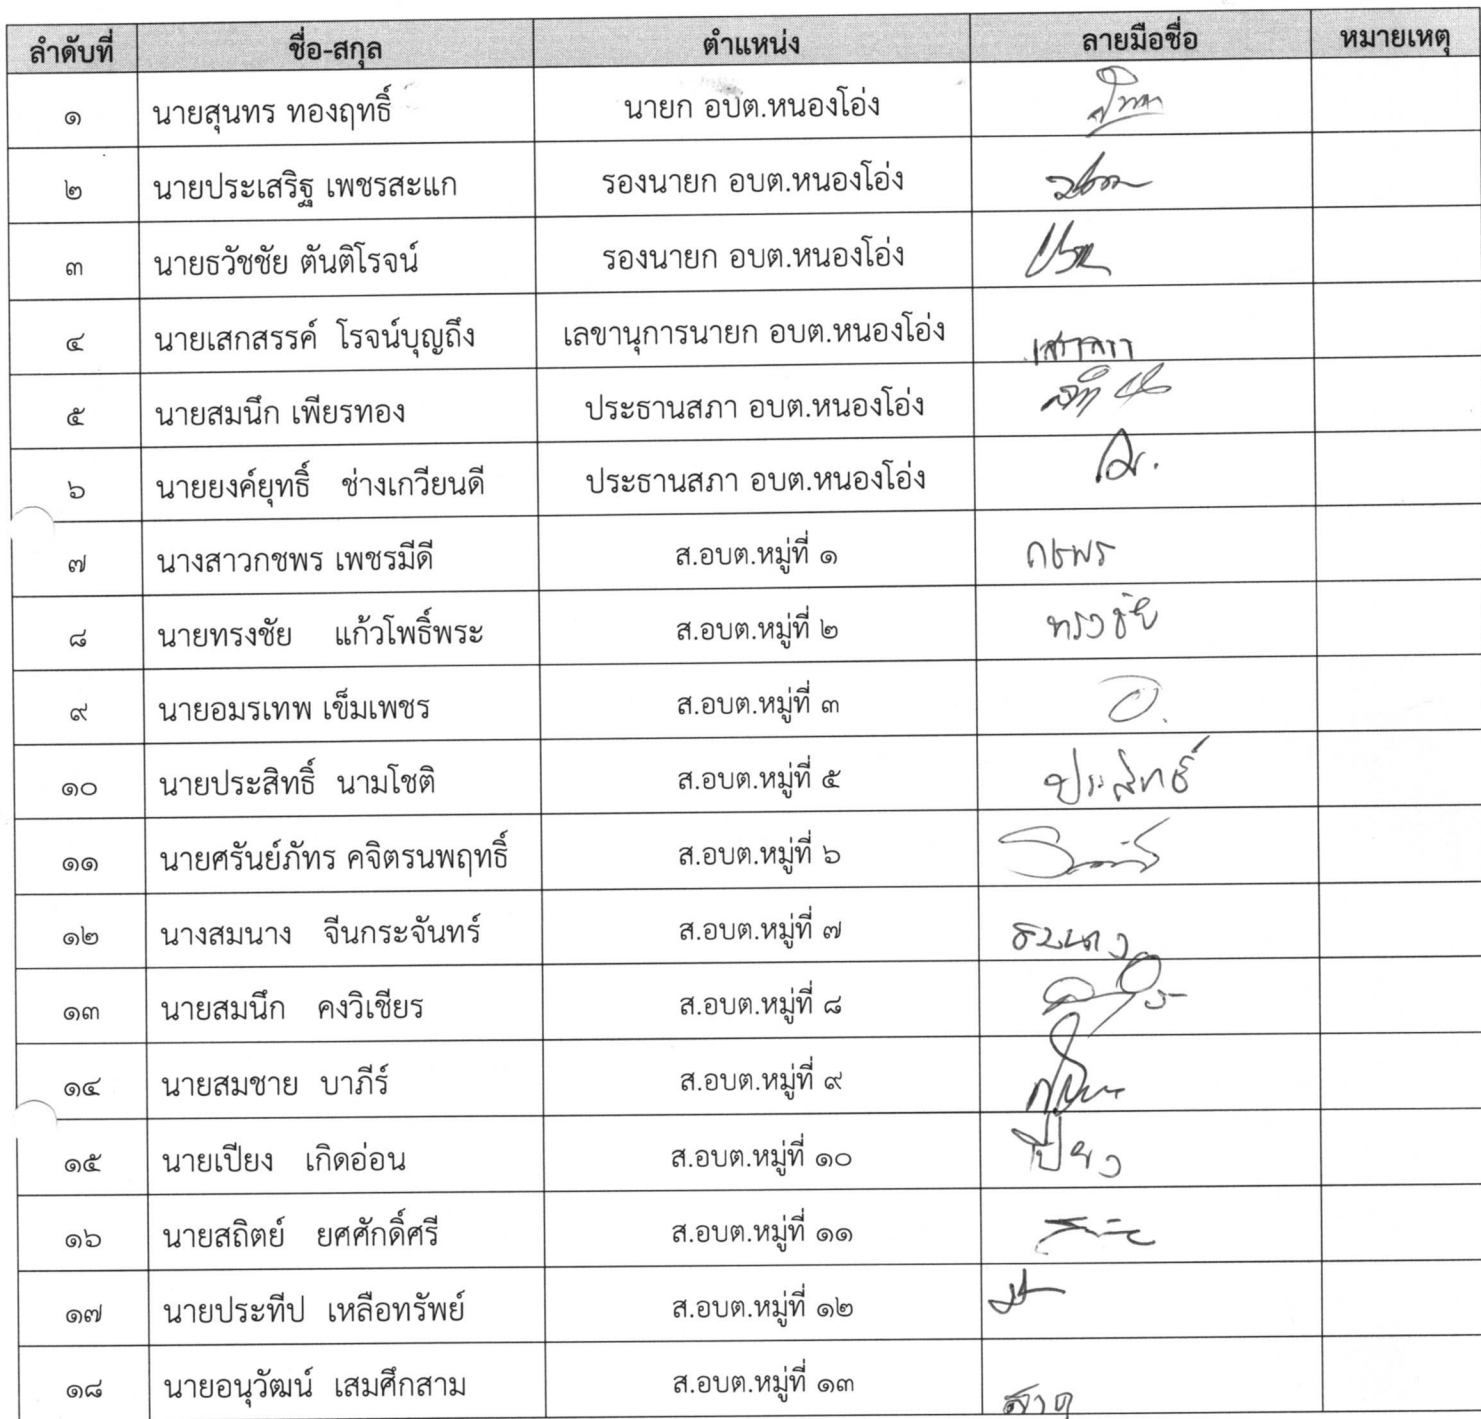 ลำดับที่ ชื่อ-สกุล ตำแหน่ง ลายมือชื่อ หมายเหตุ
๑ นายสุนทร ทองฤทธิ์ นายก อบต.หนองโอ่ง
๒ นายประเสริฐ เพชรสะแก รองนายก อบต.หนองโอ่ง
๓ นายธวัชชัย ตันติโรจน์ รองนายก อบต.หนองโอ่ง
๔ นายเสกสรรค์ โรจน์บุญถึง เลขานุการนายก อบต.หนองโอ่ง
๕ นายสมนึก เพียรทอง ประธานสภา อบต.หนองโอ่ง
๖ นายยงค์ยุทธิ์ ช่างเกวียนดี ประธานสภา อบต.หนองโอ่ง
๗ นางสาวกชพร เพชรมีดี ส.อบต.หมู่ที่ ๑ กชพร
๘ นายทรงชัย แก้วโพธิ์พระ ส.อบต.หมู่ที่ ๒ ทรงชัย
๙ นายอมรเทพ เข็มเพชร ส.อบต.หมู่ที่ ๓
๑๐ นายประสิทธิ์ นามโชติ ส.อบต.หมู่ที่ ๕ ประสิทธิ์
๑๑ นายศรันย์ภัทร คจิตรนพฤทธิ์ ส.อบต.หมู่ที่ ๖
๑๒ นางสมนาง จีนกระจันทร์ ส.อบต.หมู่ที่ ๗ สมนาง
๑๓ นายสมนึก คงวิเชียร ส.อบต.หมู่ที่ ๘
๑๔ นายสมชาย บาภีร์ ส.อบต.หมู่ที่ ๙
๑๕ นายเปียง เกิดอ่อน ส.อบต.หมู่ที่ ๑๐ เปียง
๑๖ นายสถิตย์ ยศศักดิ์ศรี ส.อบต.หมู่ที่ ๑๑
๑๗ นายประทีป เหลือทรัพย์ ส.อบต.หมู่ที่ ๑๒
๑๘ นายอนุวัฒน์ เสมศึกสาม ส.อบต.หมู่ที่ ๑๓